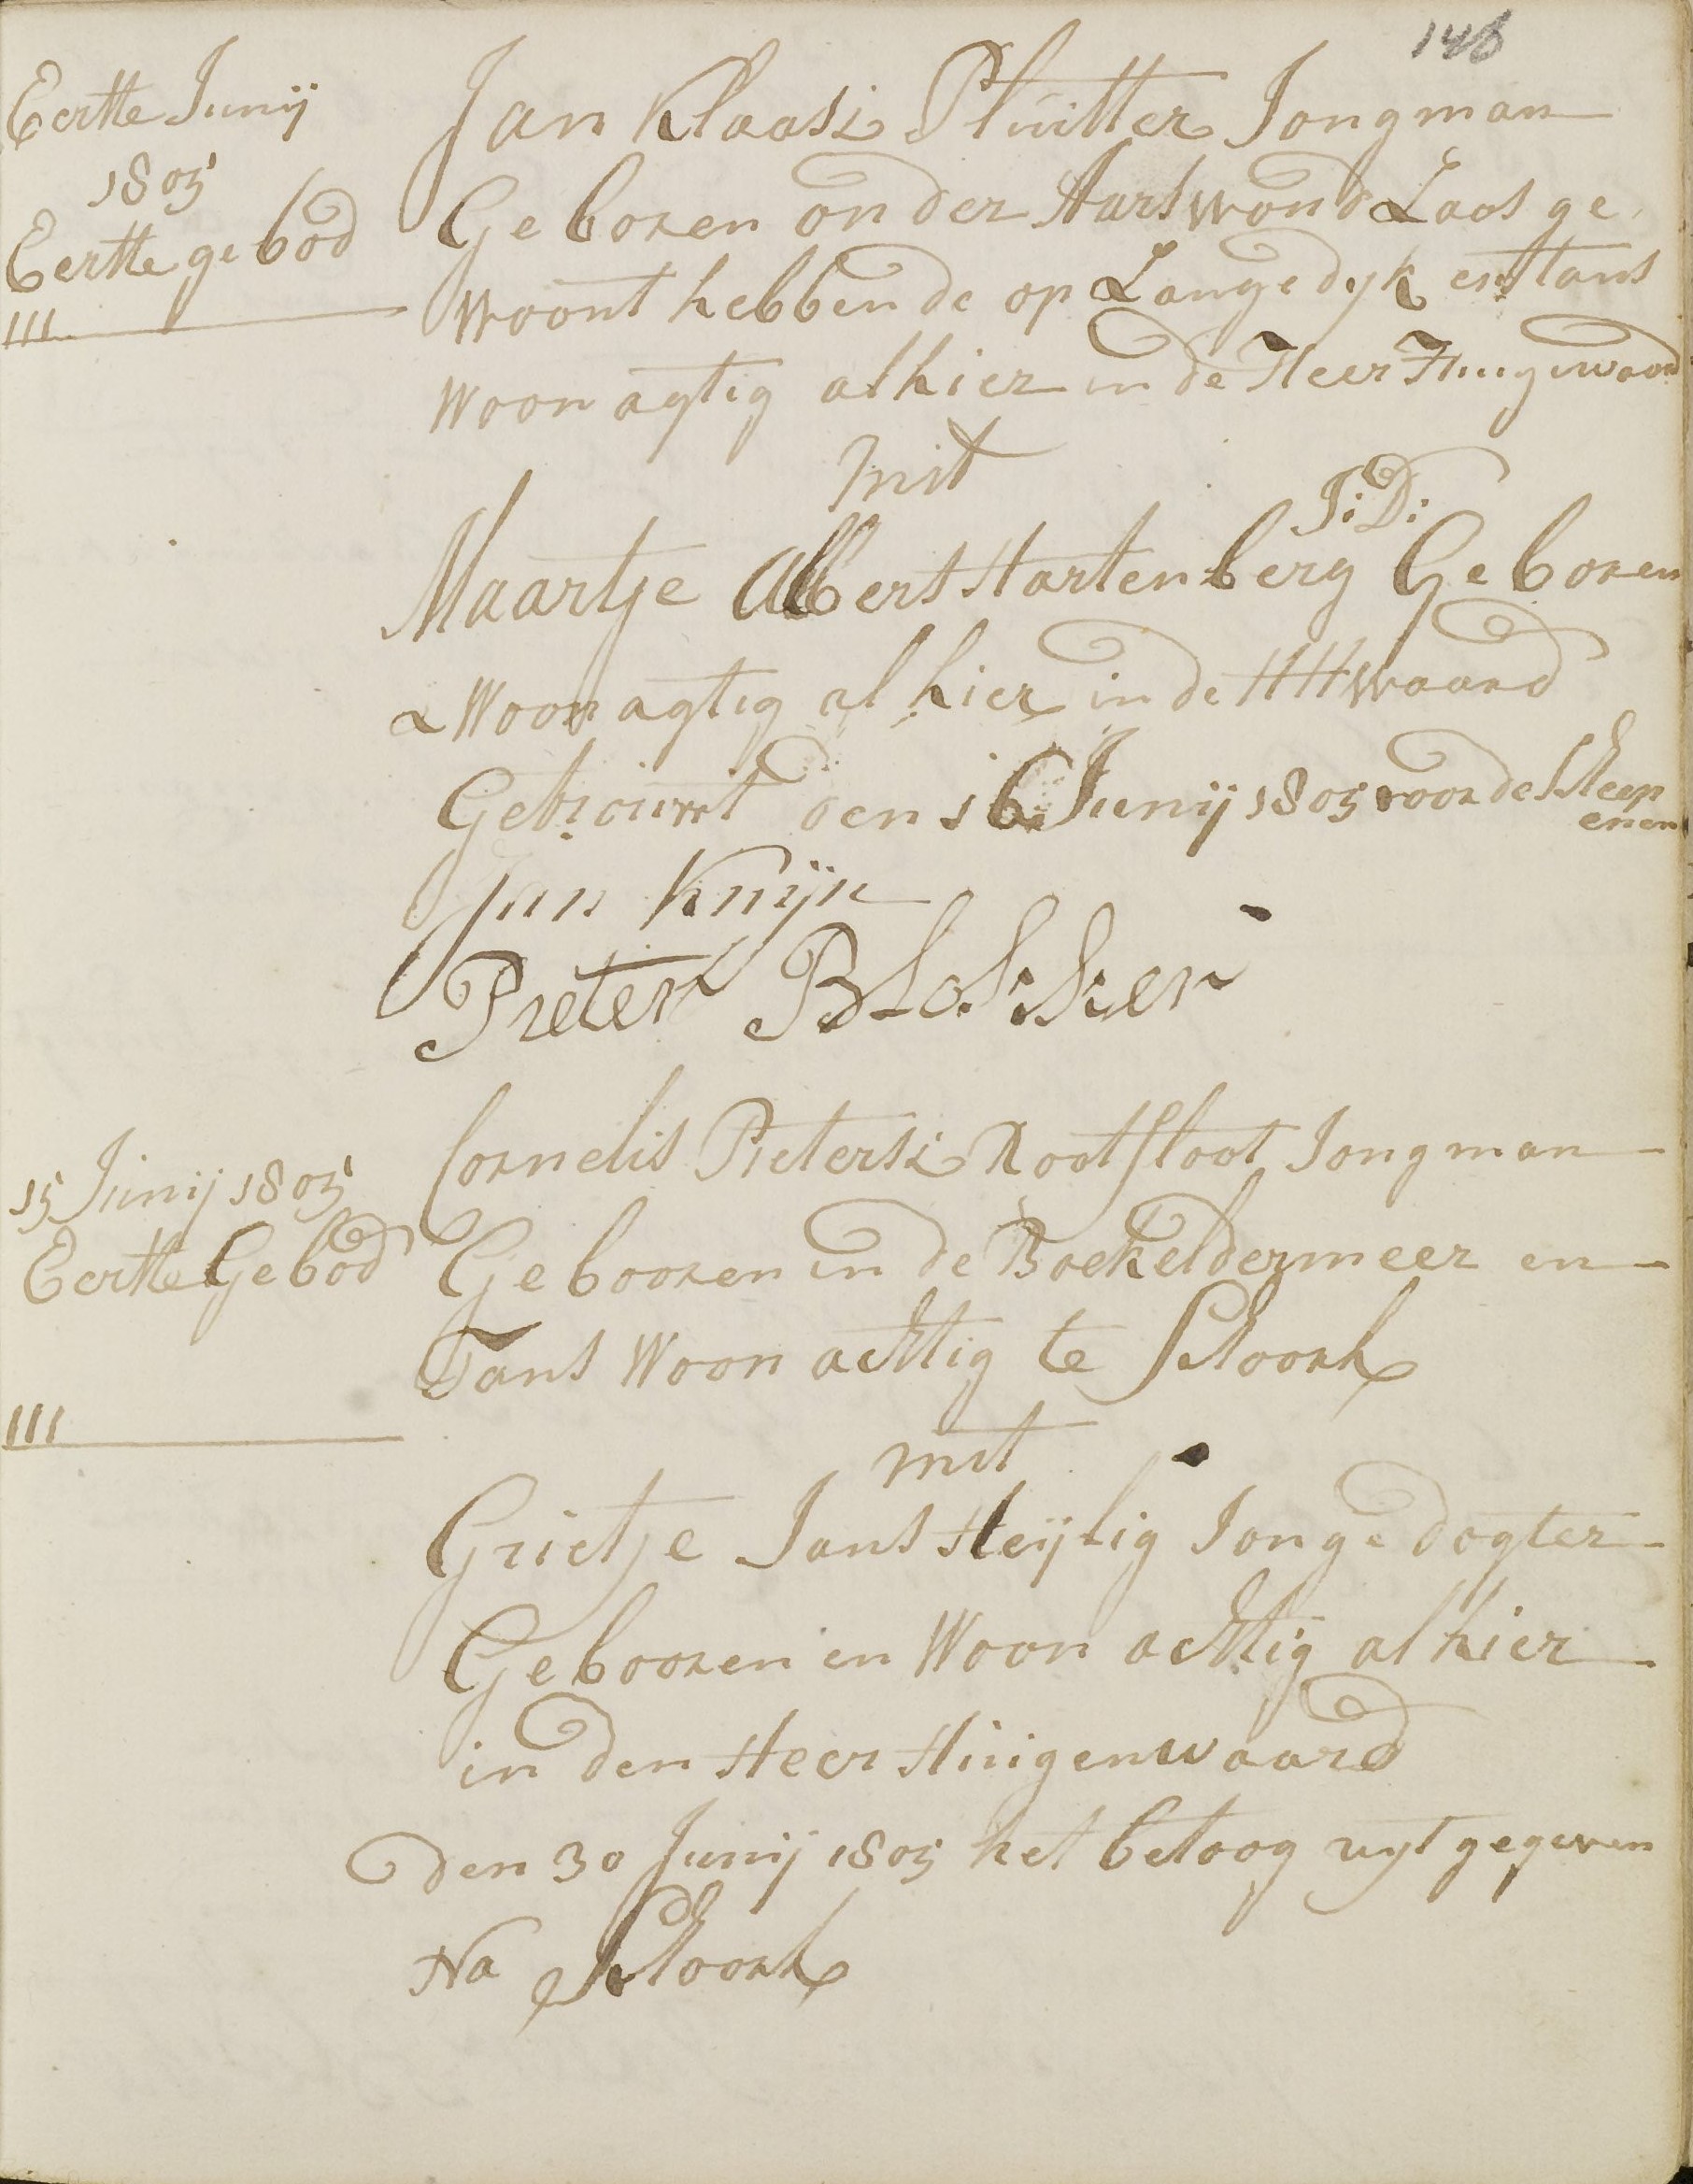 148
Eertte Junij
1805
Eertte gebod
III
Jan Klaasz Pluitter Jongman
Geboren onder Aarswoud Laas ge
woont hebbende op Langedyk en tans
woonagtig alhier in de Heer Hugewaard
mit
J:D:
Maartje Albert Hartenberg Geboren
& Woonagtig alhier in de HHwaard
Getrouwt den 16 Junij 1805 voor de Scheep
enen
Jan Knijn
Pieter Blokker
15 Junij 1805
Eertte Gebod
III
Cornelis Pietersz Kootsloot Jongman
Gebooren in de Boekeldermeer en
Tans Woonachtig te Schoorl
mit
Grietje Jans Heijlig Jonge dogter
Gebooren en Woonachtig alhier
in den Heer Huigenwaard
den 30 Junij 1805 het betoog uijt gegeven
Na Schoorl